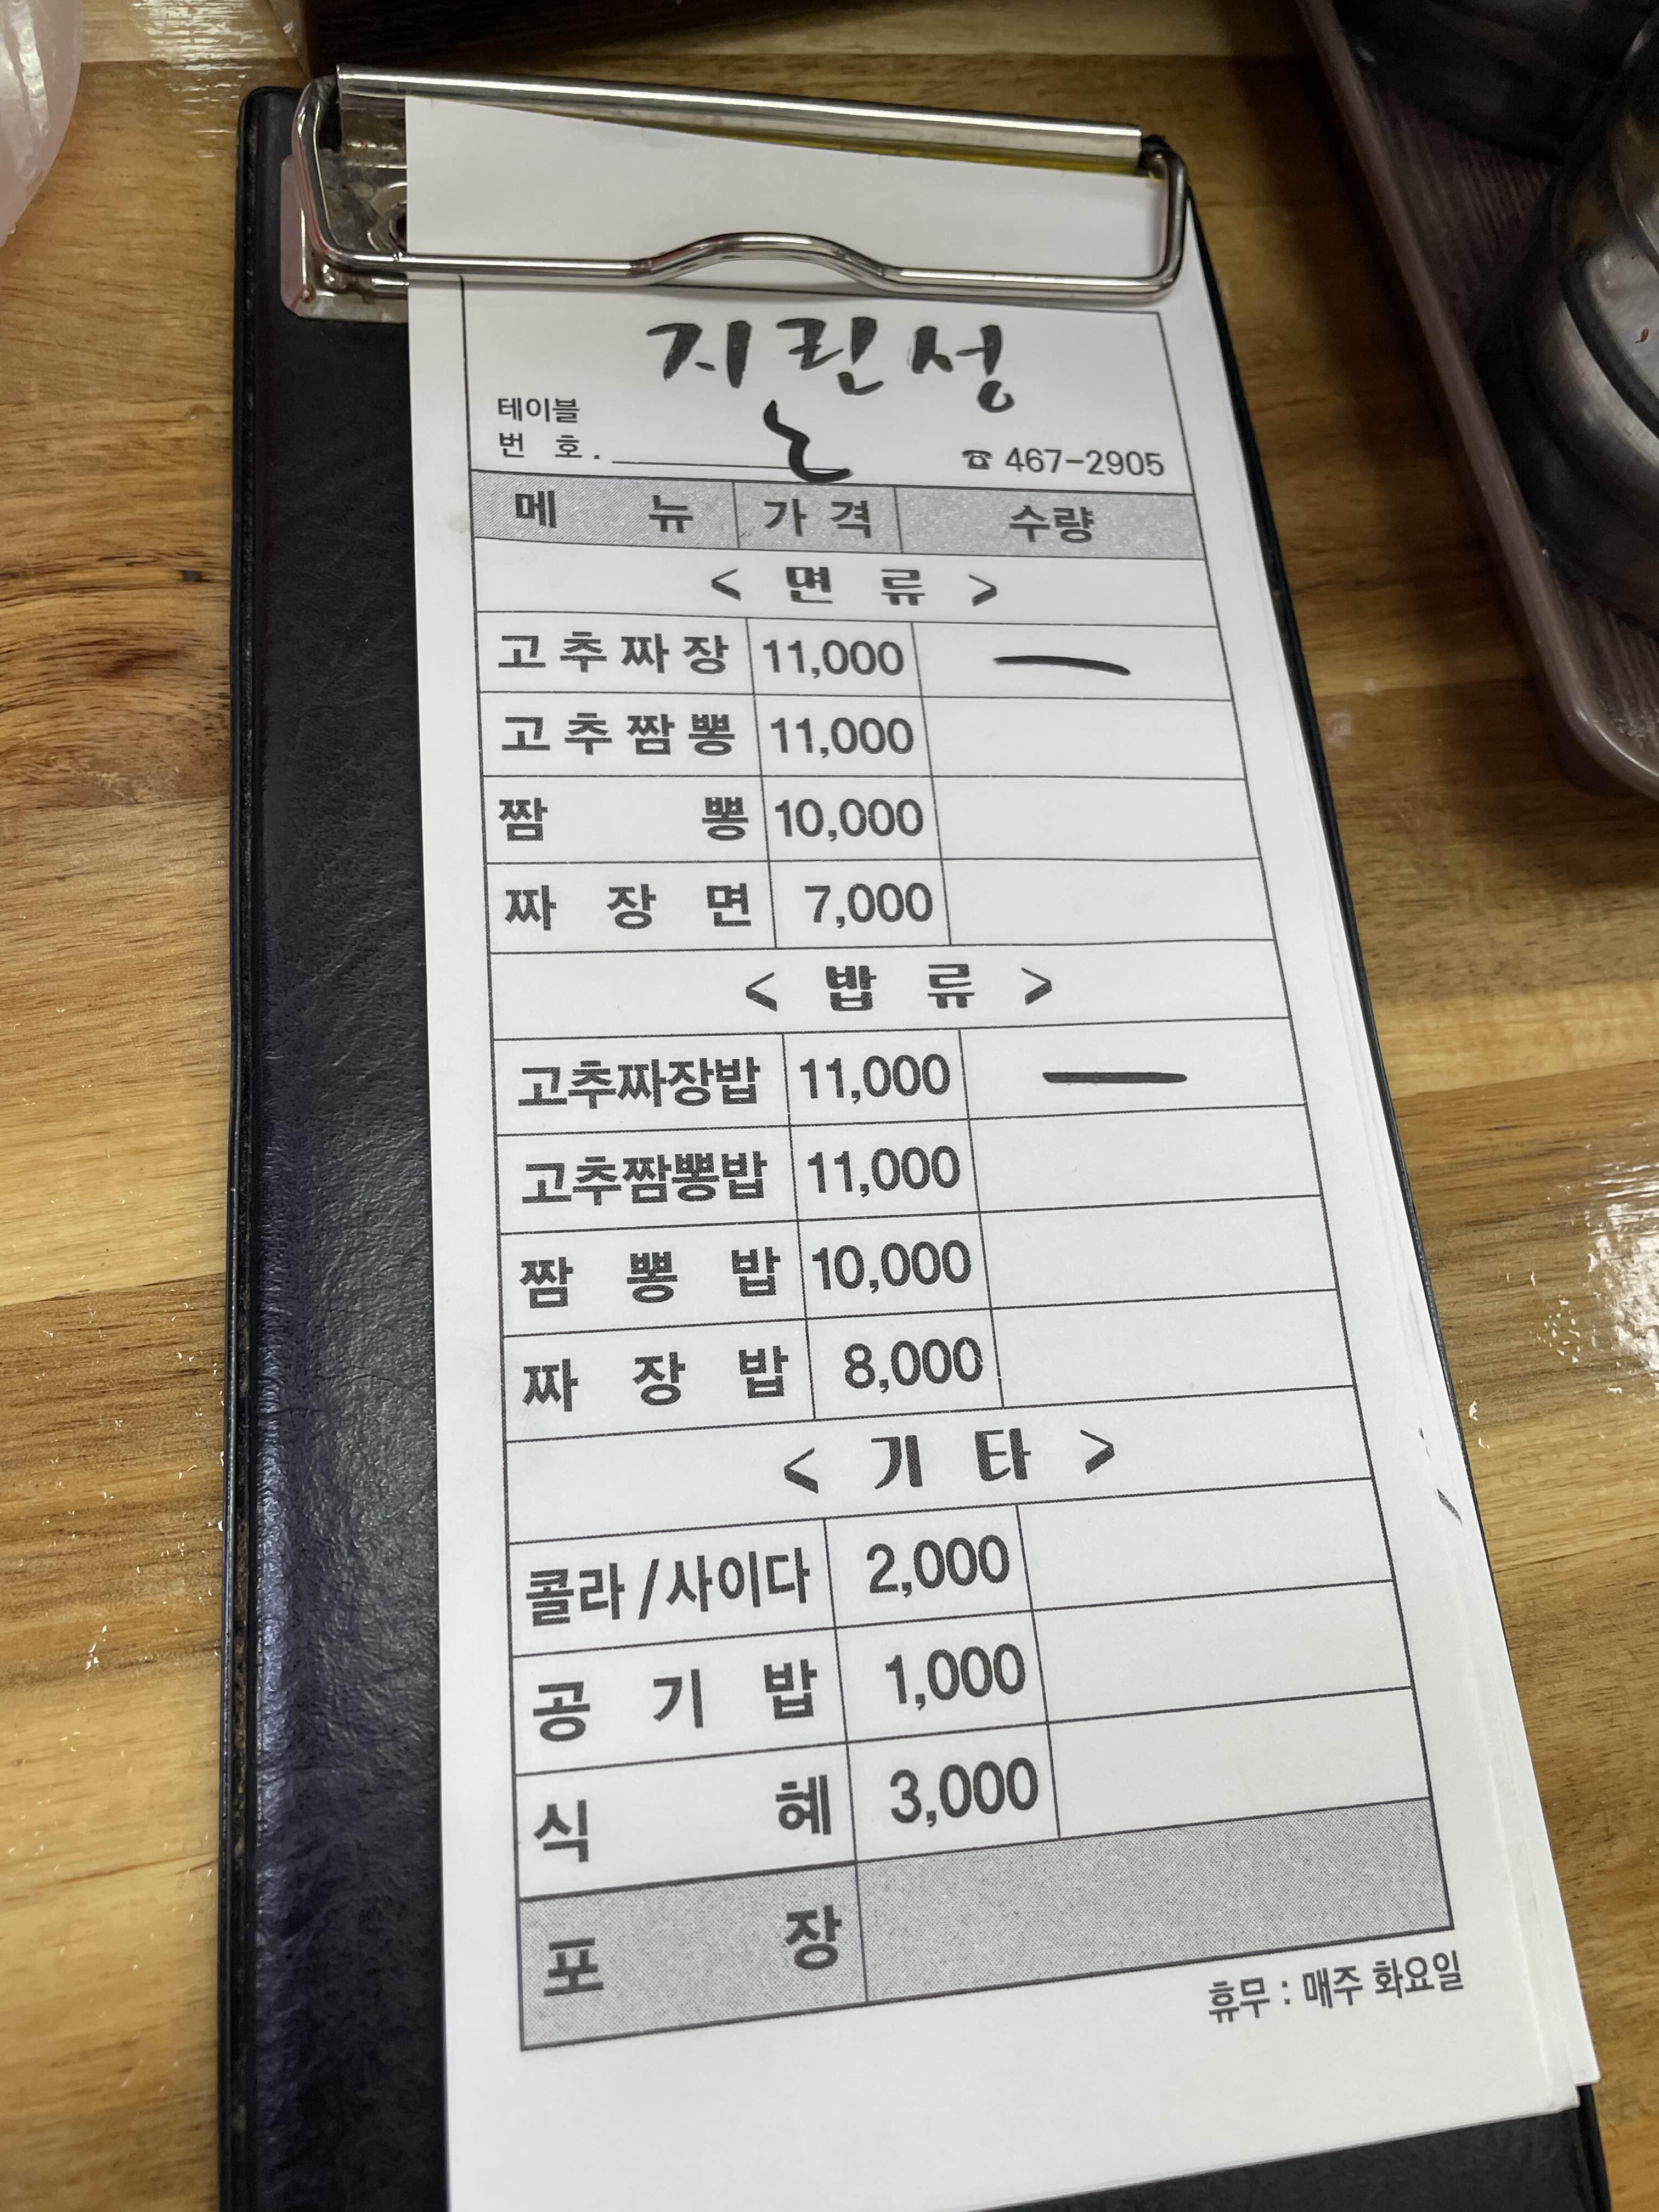 지린성
테이블
번 호. 2 ☎ 467-2905
메 뉴 가 격 수량
< 면 류 >
고추짜장 11,000 一
고추짬뽕 11,000
짬 뽕 10,000
짜 장 면 7,000
< 밥 류 >
고추짜장밥 11,000 一
고추짬뽕밥 11,000
짬 뽕 밥 10,000
짜 장 밥 8,000
< 기 타 >
콜라/사이다 2,000
공 기 밥 1,000
식 혜 3,000
포 장
휴무 : 매주 화요일